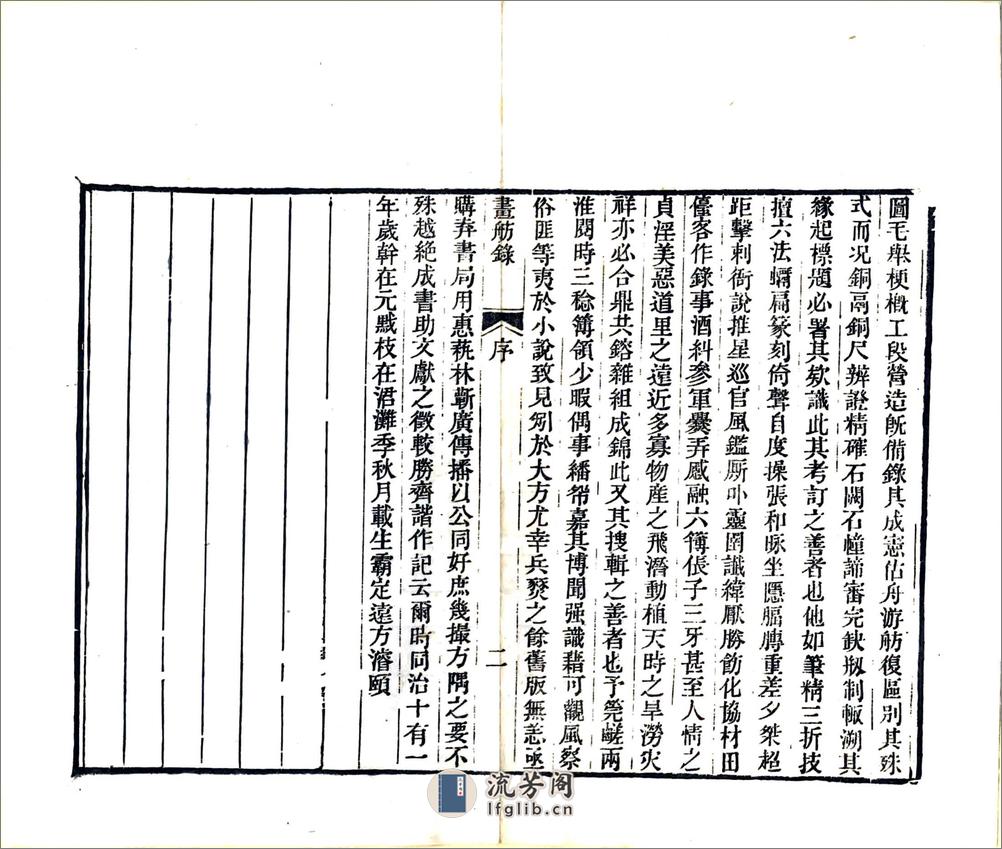 圖毛舉梗槪工段營造旣備錄其成憲估舟游舫復區別其殊
式而况銅鬲銅尺辨證精確石闕石幢諦審完缺剏制輙溯其
緣起標題必署其欵識此其考訂之善者也他如筆精三折技
擅六法蠕扁篆刻倚聲自度操張和眎坐隱腷膊重差夕桀超
距擊刺衙說推星巡官風鑑厮卟靈圉讖緯厭勝飭化協材田
儓客作錄事酒糾參軍爨弄感融六簿倀子三牙甚至人情之
貞淫美惡道里之遠近多寡物産之飛潛動植天時之旱澇灾
祥亦必合鼎共鎔雜組成錦此又其搜輯之善者也予筦鹺兩
淮閱時三稔簿領少暇偶事繙帑嘉其博聞强識藉可觀風察
俗匪等夷於小說致見刎於大方尤幸兵燹之餘舊版無恙亟
畫舫錄 序 二
購弆書局用惠蓺林蘄廣傳播以公同好庶幾撮方隅之要不
殊越絶成書助文獻之徵較勝齊諧作記云爾時同治十有一
年歲幹在元黓枝在涒灘季秋月載生霸定遠方濬頤
流芳阁
lfglib.cn